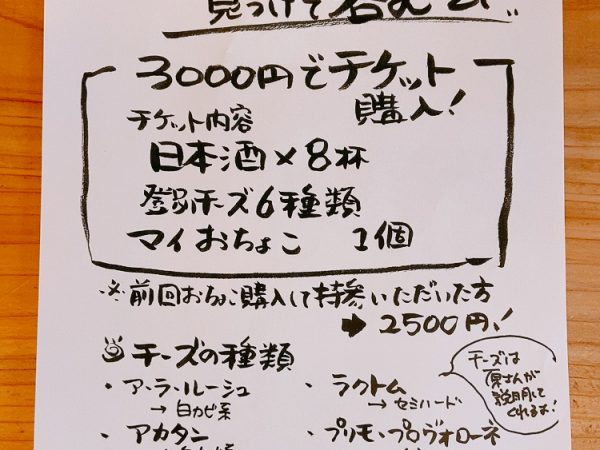 見つけて呑む
3000円でチケット
購入!
チケット内容
日本酒×8杯
チーズ6種類
マイおちょこ 1個
※前回おちょこ購入して持参いただいた方
➡ 2500円!
チーズの種類
・ア・ラ・ルーシュ
→白カビ系
・アカタン
・ラクトム
→セミハード
・プリモ・プロヴォローネ
チーズは
原さんが
説明して
くれるよ!